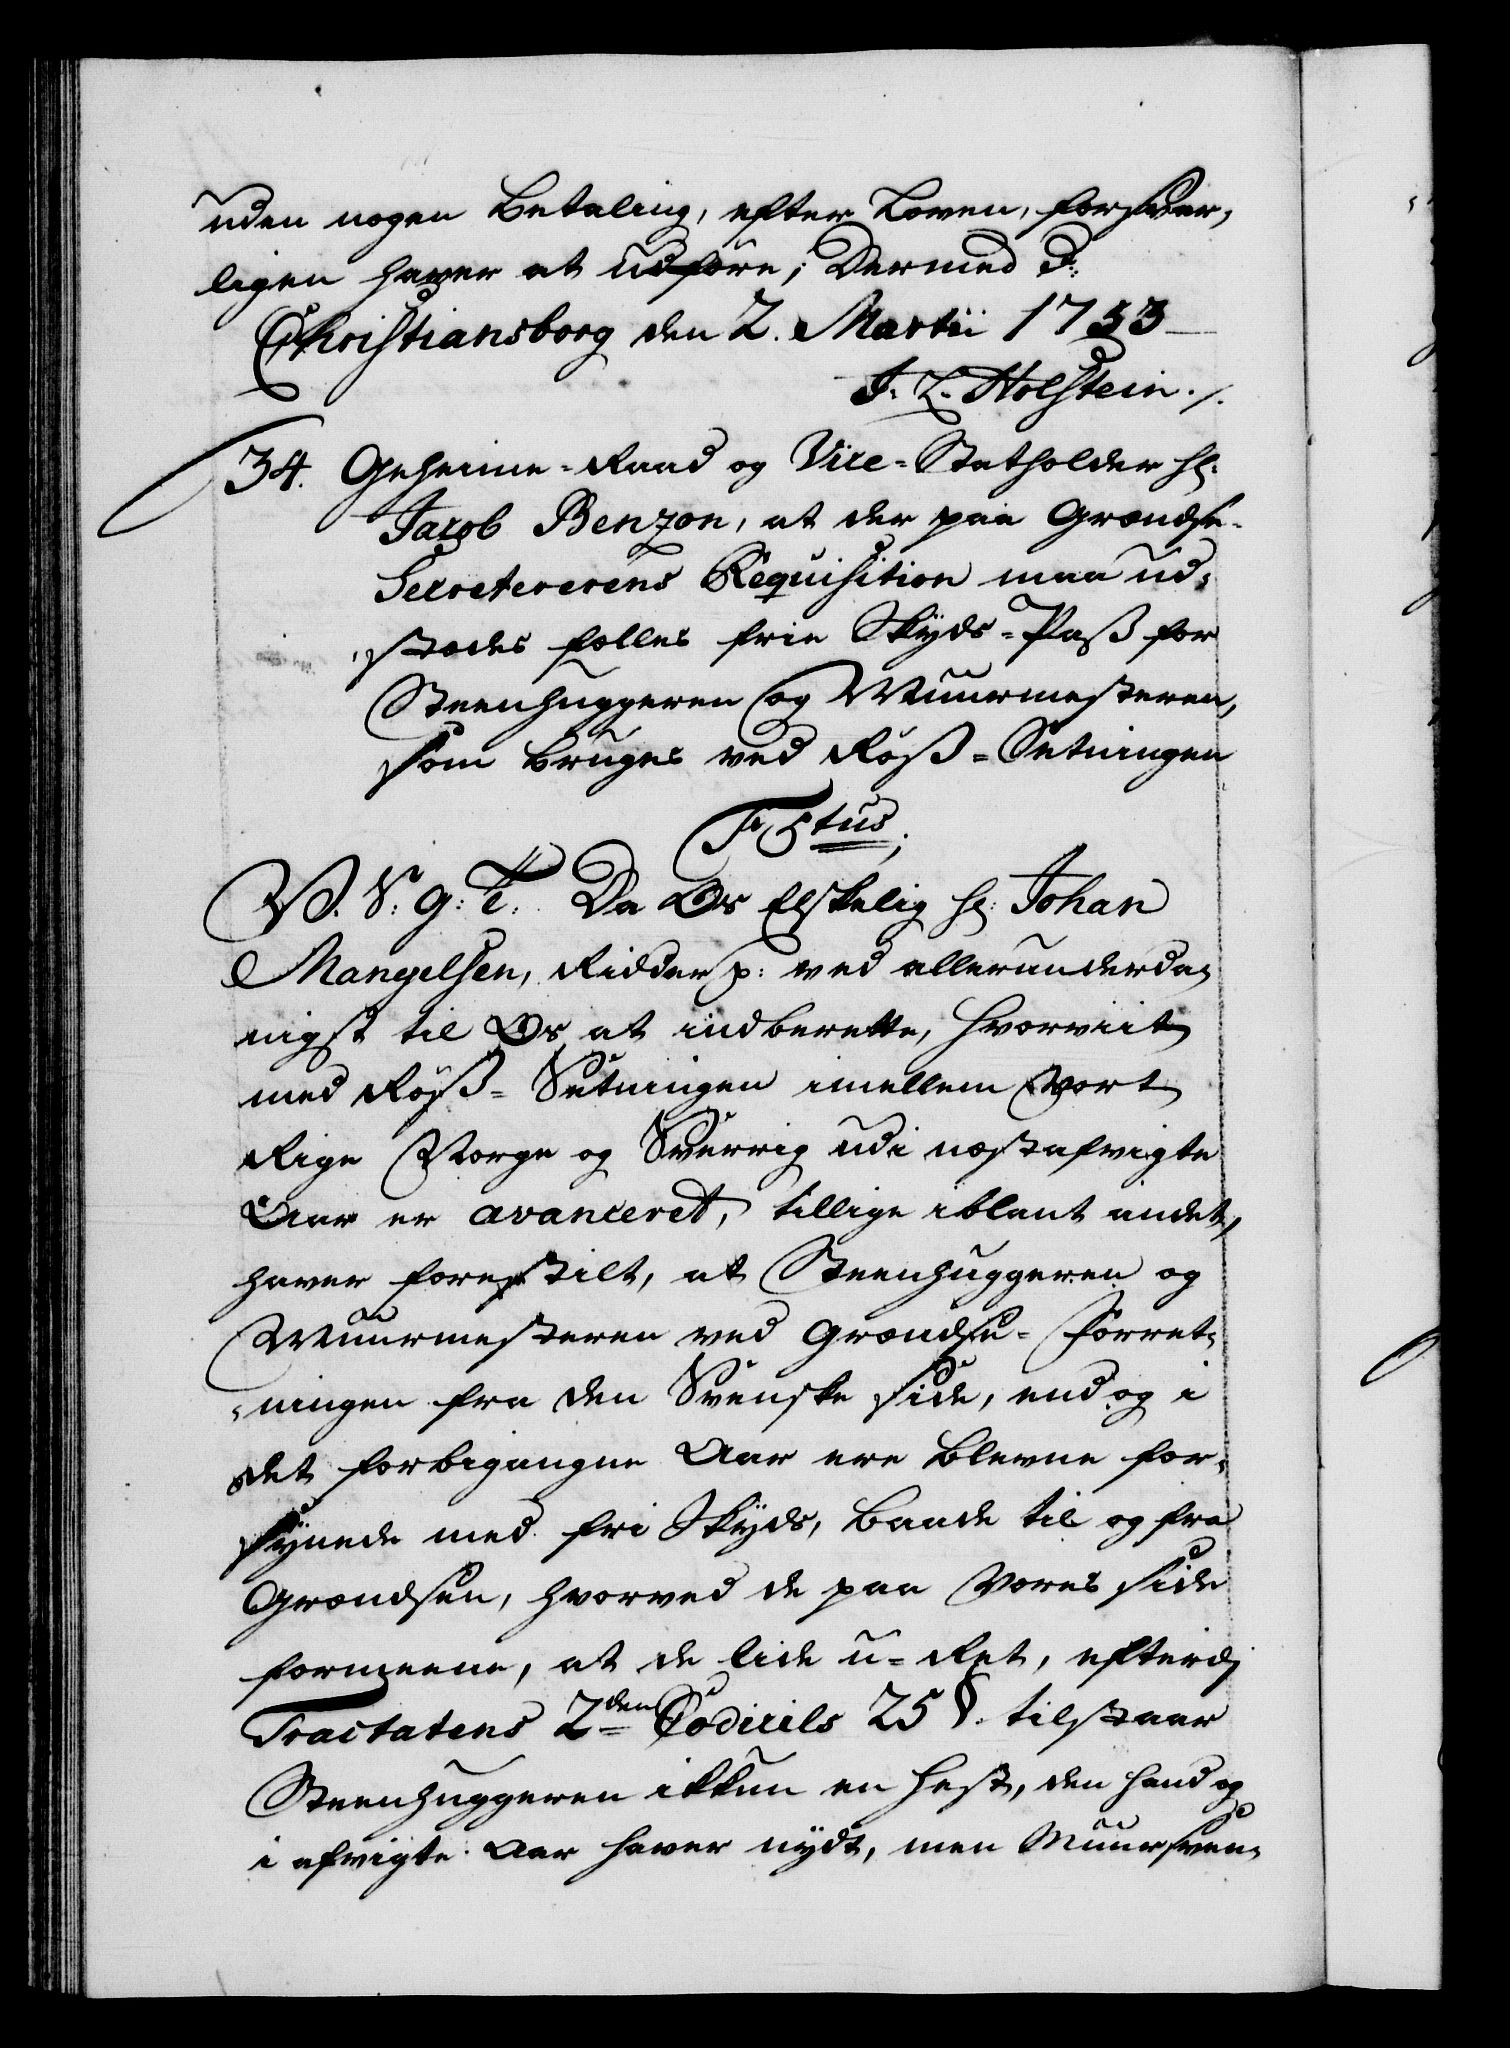 uden nogen Betaling, efter Loven, forsvar-
ligen haver at udføre; Dermed d:
Christiansborg den 2. Martii 1753
J. L. Holstein ./.
34. Geheime-Raad og Vice-Statholder H:
Jacob Benzon, at der paa Grændse-
Secretererens Requisition maa ud-
stædes fælles frie Skyds-Pass for
Steenhuggeren og Muurmesteren,
som bruges ved Röss-Setningen
F 5tus;
V. S: G: T: Da Os Elskelig H: Johan
Mangelsen, Ridder p: ved allerunderda-
nigst til Os at indberette, hvorviit
med Röss-Setningen imellem Vort
Rige Norge og Sverrig udi næstafvigte
Aar er avanceret, tillige iblant andet,
haver forestilt, at Steenhuggeren og
Muurmesteren ved Grændse-Forret-
ningen fra den Svenske side, end og i
det forbigangne Aar ere blevne for-
synede med fri Skyds, baade til og fra
Grændsen, hvorved de paa Vores side
formeene, at de lide u-Ret, efterdj
Tractatens 2den Codicils 25 §. tilstaar
Steenhuggeren ikkun en Hest, den hand og
i afvigte Aar haver nydt, men Muursven-